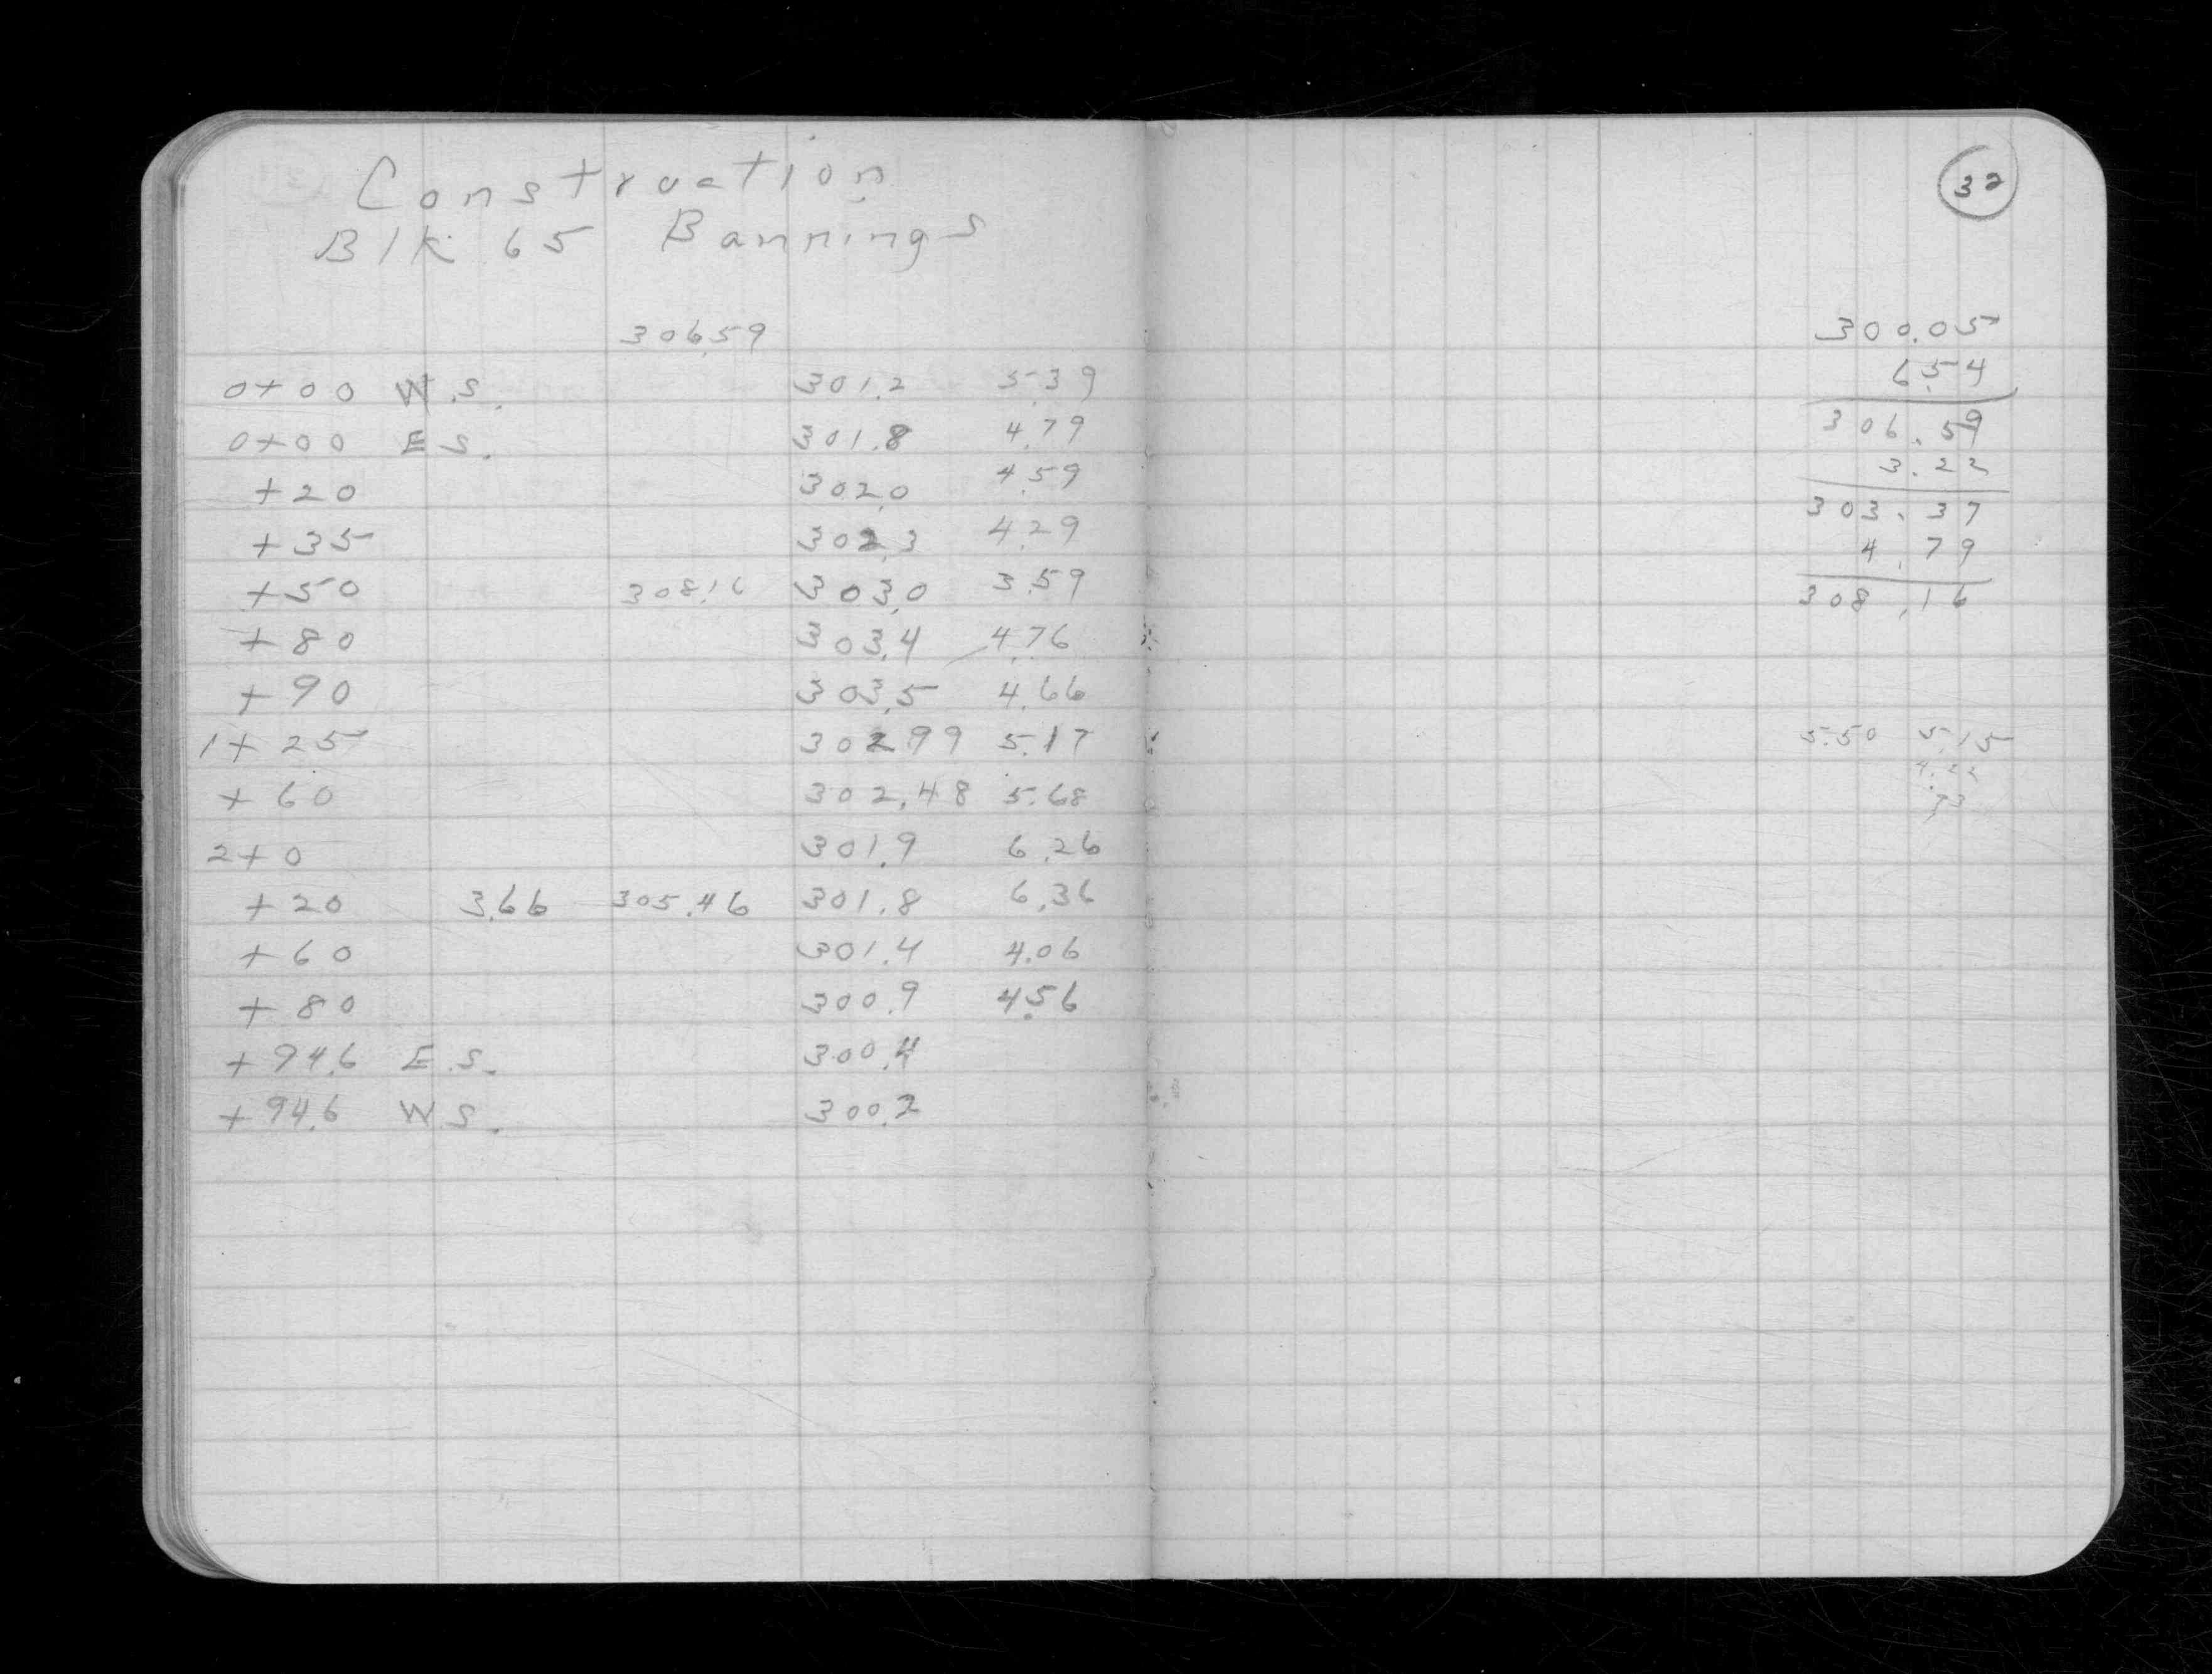 Construction
Blk 65 Bannings
306.59
0+00 W.S. 301.2 5.39
0+00 E S. 301.8 4.79
+20 302.0 4.59
+35 302.3 4.29
+50 308.16 303.0 3.59
+80 303.4 4.76
+90 303.5 4.66
1+25 302.99 5.17
+60 302.48 5.68
2+0 301.9 6.26
+20 3.66 305.46 301.8 6.36
+60 301.4 4.06
+80 300.9 4.56
+94.6 E.S. 300.4
+94.6 W S. 300.2
32
300.05
6.54
306.59
3.22
303.37
4.79
308.16
5.50 5.15